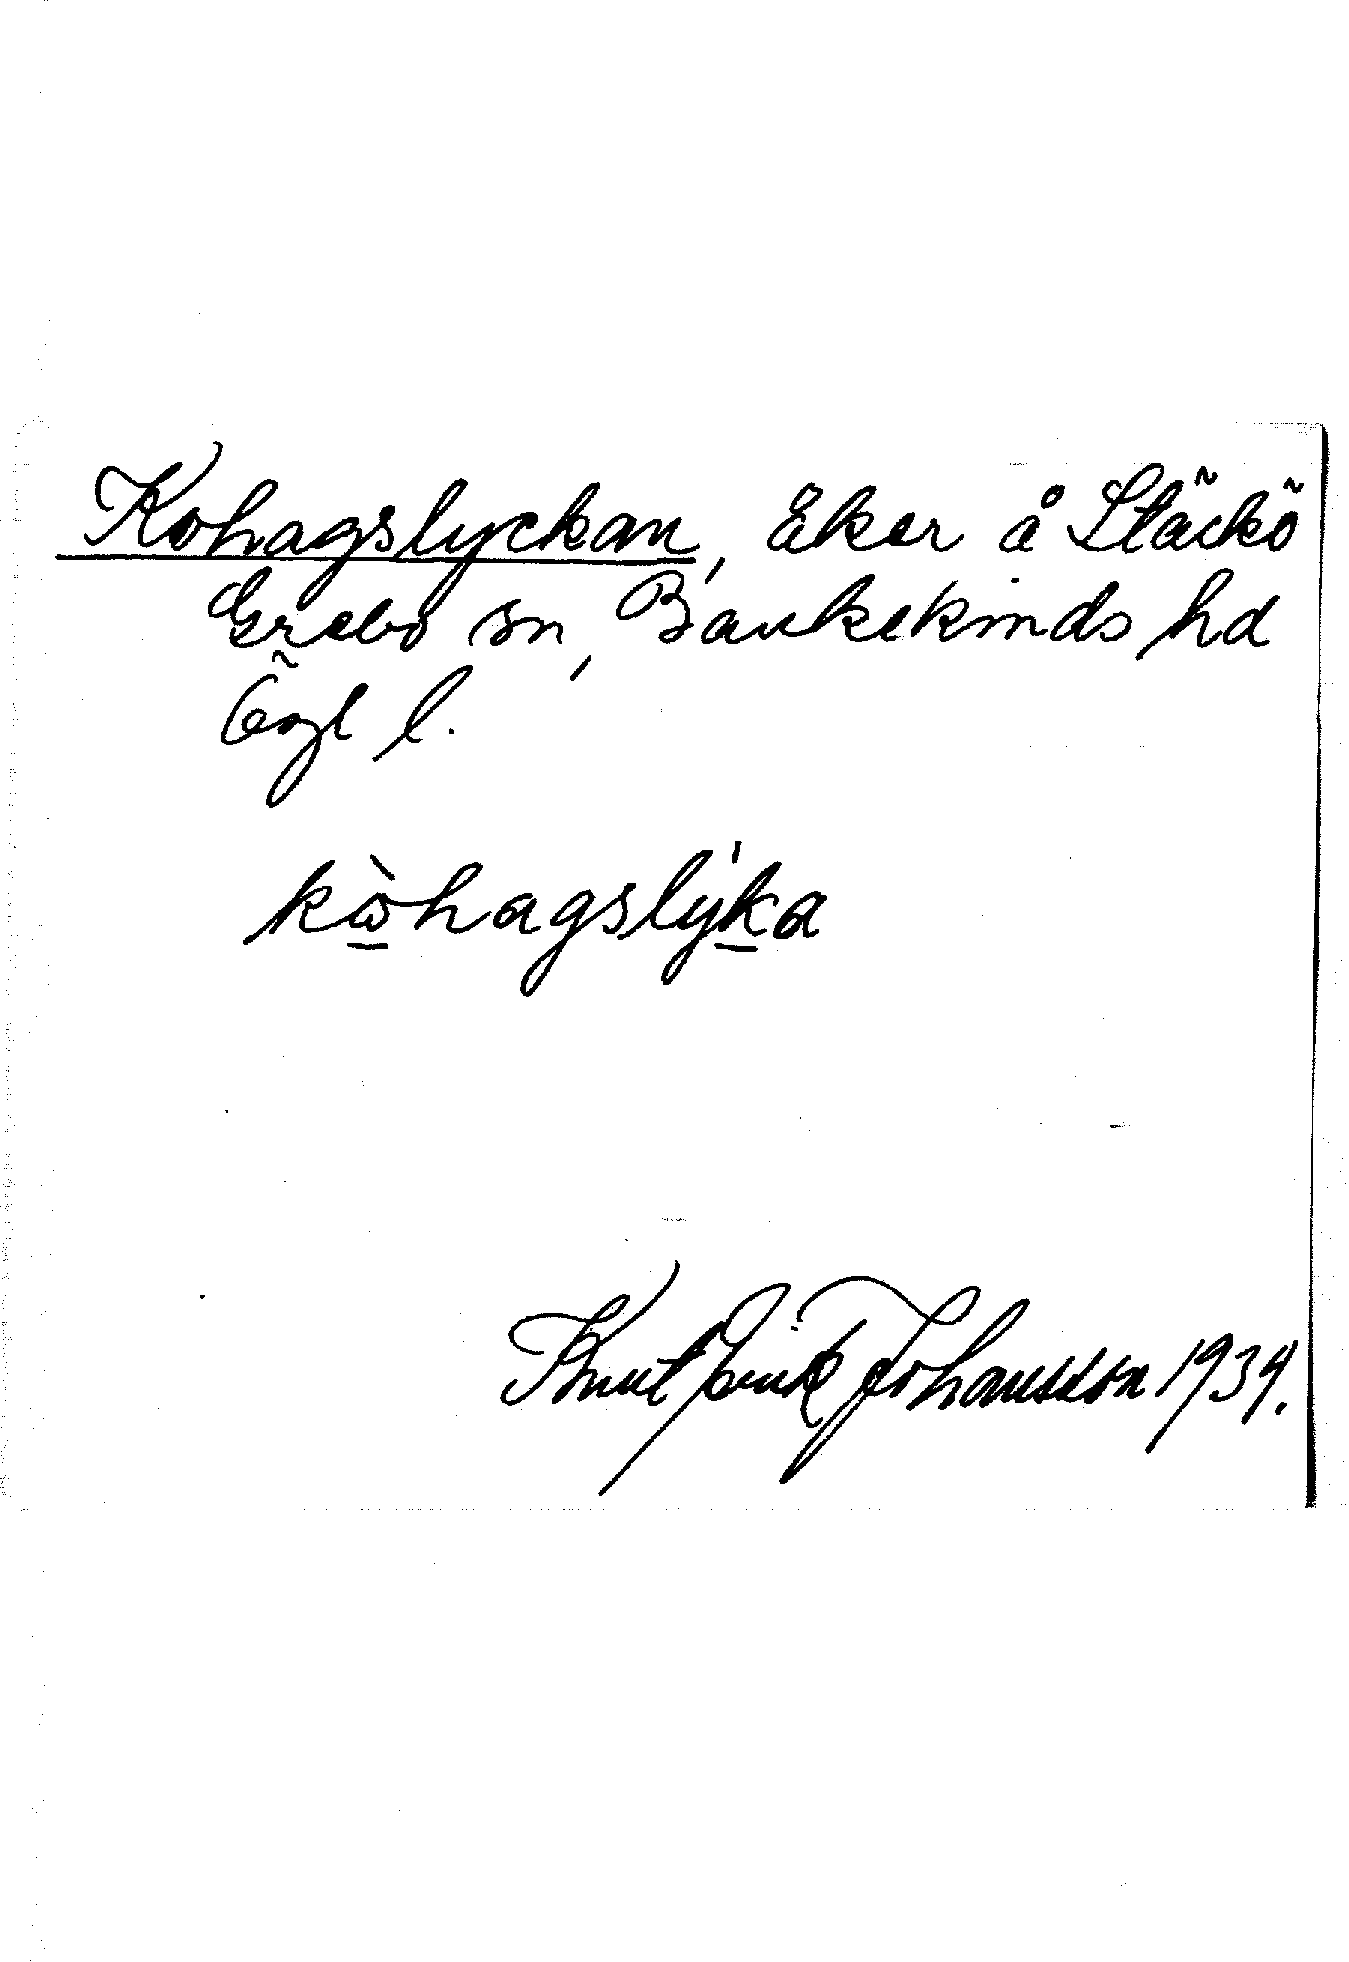 Kohagslyckan, åker å Stäckö
Grebo sn, Bankekinds hd
Ögl l.
kὼ̲hagslýk̲a
Knut Erik Johansson 1934.